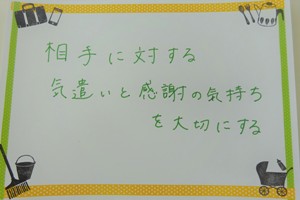 相手に対する
気遣いと感謝の気持ち
を大切にする